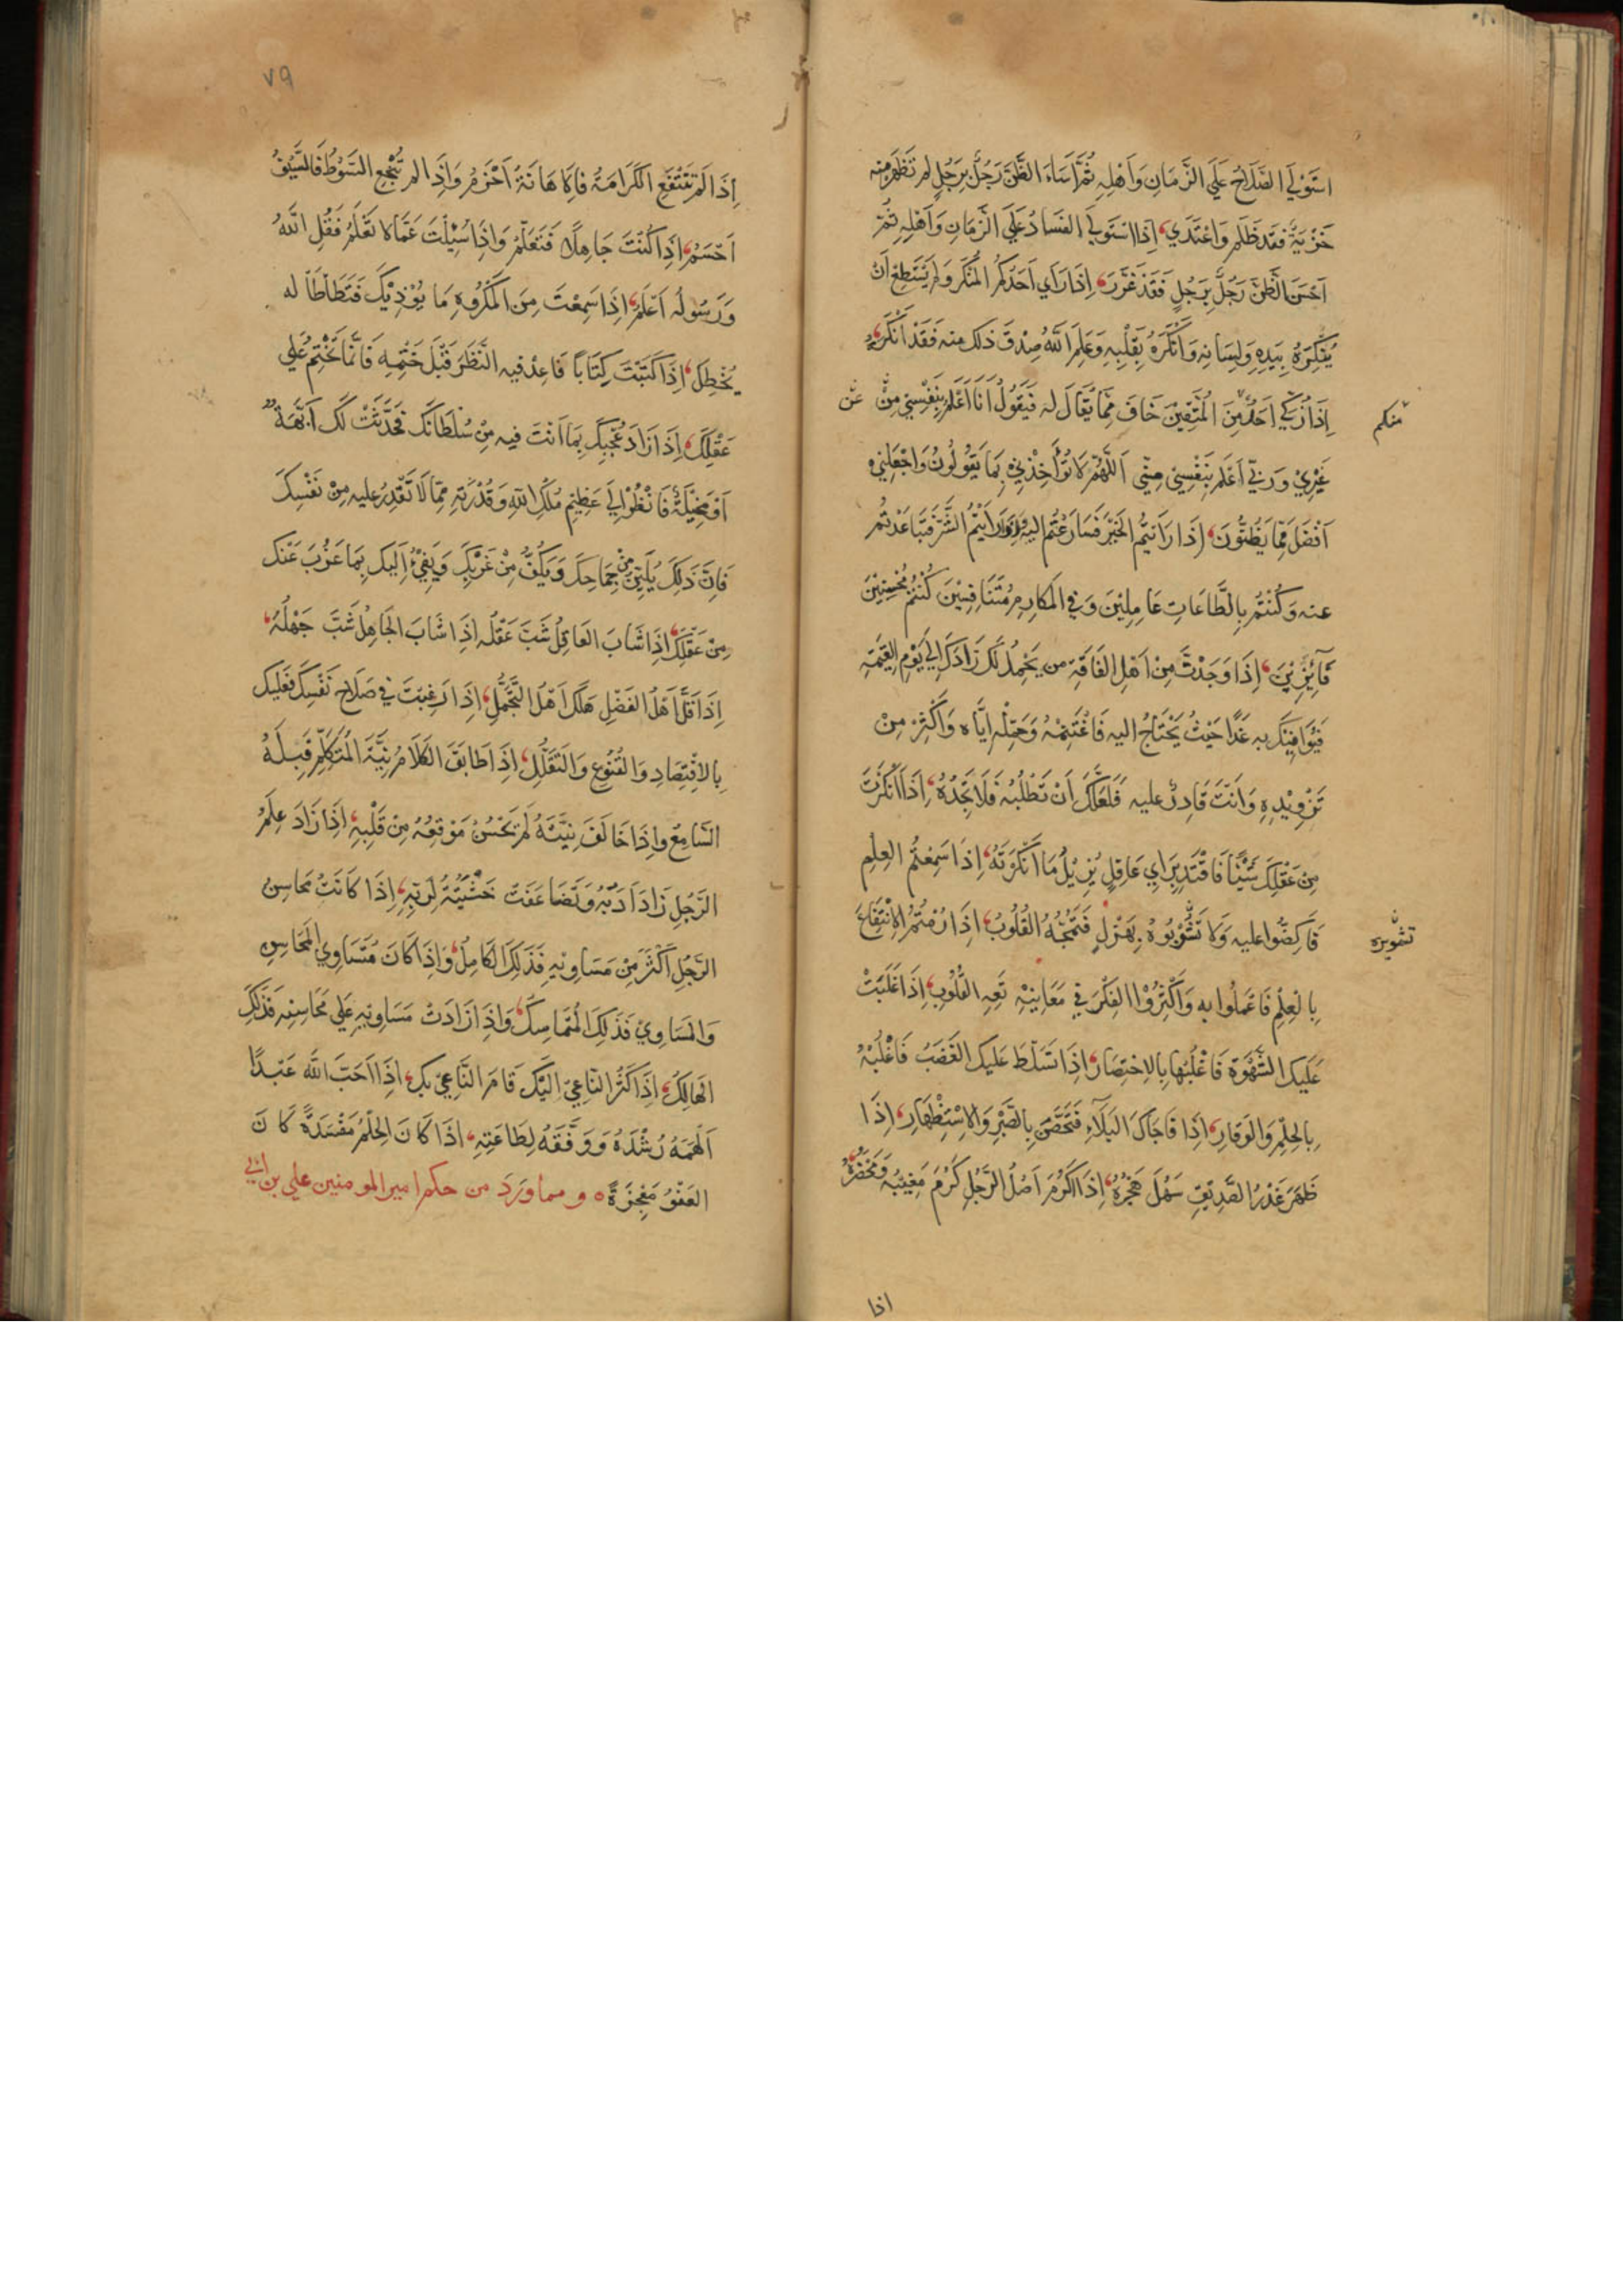 اسْتَوْلَي الصَّلَاحُ عَلَي الزَّمَانِ وَاَهْلِهِ ثُمَّ اَسَاءَ الظَّنَّ رَجُلٌ بِرَجُلٍ لم تَظْهَر منه
خَزْيَةٌ فقد ظَلَم وَاعْتَدَي، اِذَا اسْتَوْلَي الفَسَادُ عَلَي الزَّمَانِ وَاَهْلِهِ ثُمَّ
اَحْسَنَ الظَّنَّ رَجُلٌ بِرَجُلٍ فَقَدْ غَرَّرَ، اِذَا رَاَي اَحَدُكُمُ المُنْكَر وَلَم يَسْتَطِعْ اَنْ
يُنْكِرَهُ بِيَدِهِ وَلِسَانِهِ وَاَنْكَرَهُ بِقَلْبِهِ وَعَلِمَ اللَّهُ صِدْقَ ذلك منه فَقَدْ اَنْكَرَهُ،
اِذَا زُكِّيَ اَحَدٌ مِنَ المُتَّقِيْنَ خَافَ مِمَّا يُقَالُ له فَيَقُولُ اَنَا اَعْلَمُ بِنَفْسِيْ مِنْ
عن
منكم
غَيْرِيْ وَرَبِّي اَعْلَم بِنَفْسِيْ مِنِّي اَللَّهُمَّ لَا تُؤَاخِذْنِيْ بِمَا يَقُولُونُ وَاجْعَلْنِي
اَفْضَلَ مِمَّا يَظُنُّونَ، اِذَا رَاَيْتُمُ الخَيْرَ فَسَارَعْتُم اليه وَرَاَيْتُمُ الشَّرَّ فَتَبَاعَدْتُم
عنه وَكُنْتُم بِالطَّاعَاتِ عَامِلِيْنَ وَفِي المَكَارِمِ مُتَنَافِسِيْنَ كُنْتُمْ مُحْسِنِيْنَ
فَائِزِيْنَ، اِذَا وَجَدْتَ مِنْ اَهْلِ الفَاقَةِ من يَحْمِلُ لَكَ زَادَكَ اِلَي يَوْمِ القِيمَةِ
فَيُوَافِيْكَ به غَدًا حَيْثُ يَحْتَاجُ اليه فَاغْتَنِمْهُ وَحَمِّلْهُ اِيَّاه وَاَكْثِرْ مِنْ
تَزْوِيْدِهِ وَاَنْتَ قَادِرٌ عليه فَلَعَلَّكَ اَنْ تَطْلُبَهُ فَلَا تَجِدُهُ، اِذَا اَنْكَرْتَ
مِنْ عَقْلِكَ شَيْئًا فَاقْتَدِ بِرَايِ عَاقِلٍ يُزِيْلُ مَا اَنْكَرْتَهُ، اِذَا سَمِعْتُم العِلْم
فَاكِضُّوا عليه وَلَا تَشُوْبُوهُ بِهَزْلٍ فَتَمُجَّهُ القُلُوبُ، اِذَا رُمْتُمُ الاِنْتِفَاعَ
تشوبره
بِالعِلْمِ فَاعْمَلُوا به وَاَكْثِرُوا الفِكْرَ فِي مَعَانِيْهِ تَعِهِ القُلُوبُ، اِذَا غَلَبَتْ
عَلَيكَ الشَّهْوَة فَاغْلِبْهَا بِالاِخْتِصَارِ، اِذَا تَسَلَّطَ عَلَيكَ الغَضَبُ فَاغْلِبْهُ
بِالحِلْمِ وَالوَقَارِ، اِذَا فَاجَاكَ البَلَآءِ فَتَحَصَّنْ بِالصَّبْرِ وَالاِسْتِظْهَارِ، اِذَا
ظَهَرَ غَدْرُ الصَّدِيْقِ سَهُلَ هَجْرُهُ، اِذَا كَرُمَ اَصْلُ الرَّجُلِ كَرُمَ مَغِيْبُه وَمَحْضَرُهُ
اذا
٧٩
اِذَا لَم تَنْفَعِ الكَرَامَةُ فَالاِهَانَةُ اَحْزَمُ وَاِذَا لم تُنْجِع السَّوْطُ فَالسَّيْفُ
اَحْسَمُ، اِذَا كُنْتَ جَاهِلًا فَتَعَلَّمْ وَاِذَا سُئِلْتَ عَمَّا لا تَعْلَمُ فَقُلِ اللَّهُ
وَرَسُولُه اَعْلَمُ، اِذَا سَمِعْتَ مِنَ المَكْرُوهِ مَا يُؤْذِيْكَ فَتَطَاْطَاْ له
يُخْطِكَ، اِذَا كَتَبْتَ كِتَابًا فَاعِدْ فيه النَّظَرَ قَبْلَ خَتْمِهِ فَاِنَّمَا تَخْتِمُ عَلَي
عَقْلِكَ، اِذَا زَادَ عُجْبُكَ بِمَا اَنْتَ فيه مِنْ سُلْطَانِكَ فَحَدَّثَتْ لَكَ اُبَّهَةٌ
اَوْ مَخِيْلَةٌ فَانْظُرْ اِلَي عَظِيْمِ مُلْكِ اللّهِ وَقُدْرَتِهِ مِمَّا لَا تَقْدِرُ عليه مِنْ نَفْسِكَ
فَاِنَّ ذَلِكَ يُلَيِّنُ مِنْ جِمَاحِكَ وَيَكُفُّ مِنْ غَرْبِكَ وَيَفِيْءُ اِلَيكَ بِمَا عَزُبَ عَنْكَ
مِنْ عَقْلِكَ، اِذَا شَابَ العَاقِلُ شَبَّ عَقْلُه اِذَا شَابَ الجَاهِلُ شَبَّ جَهْلُهُ،
اِذَا قَلَّ اَهْلُ الفَضْلِ هَلَكَ اَهْلُ التَّجَمُّلِ، اِذَا رَغِبْتَ فِي صَلَاحِ نَفْسِكَ فَعَلَيكَ
بِالاِقْتِصَادِ وَالقُنُوعِ وَالتَّقَلُّلِ، اِذَا طَابَقَ الكَلَامُ نِيَّةَ المُتَكَلِّم قَبِلَهُ
السَّامِعُ وَاِذَا خَالَفَ نِيَّتَهُ لَم يَحْسُنْ مَوْقِعُهُ مِنْ قَلْبِهِ، اِذَا زَادَ عِلْمُ
الرَّجُلِ زَادَ اَدَبُهُ وَتَضَاعَفَتْ خَشْيَتُهُ لِرَبِّهِ، اِذَا كَانَتْ مَحَاسِنُ
الرَّجُلِ اَكْثَرَ مِنْ مَسَاوِيْهِ فَذَلِكَ الكَامِلُ، وَاِذَا كَانَ مُتَسَاوِي المَحَاسِنِ
وَالمَسَاوِيْ فَذَلِكَ المُتَمَاسِكُ، وَاِذَا زَادَتْ مَسَاوِيْهِ عَلَي مَحَاسِنِه فَذَلِكَ
الهَالِكُ، اِذَا كَثُرَ النَّاعِيْ اِلَيْكَ قَامَ النَّاعِيْ بِكَ، اِذَا اَحَبَّ اللَّه عَبْدًا
اَلْهَمَهُ رُشْدَهُ وَوَفَّقَهُ لِطَاعَتِهِ، اِذَا كَانَ الحِلْمُ مَفْسَدَةً كَانَ
العَفْوُ مَعْجِزَةً ه و مما وَرَدَ من حكم امير المومنين علي بن ابي